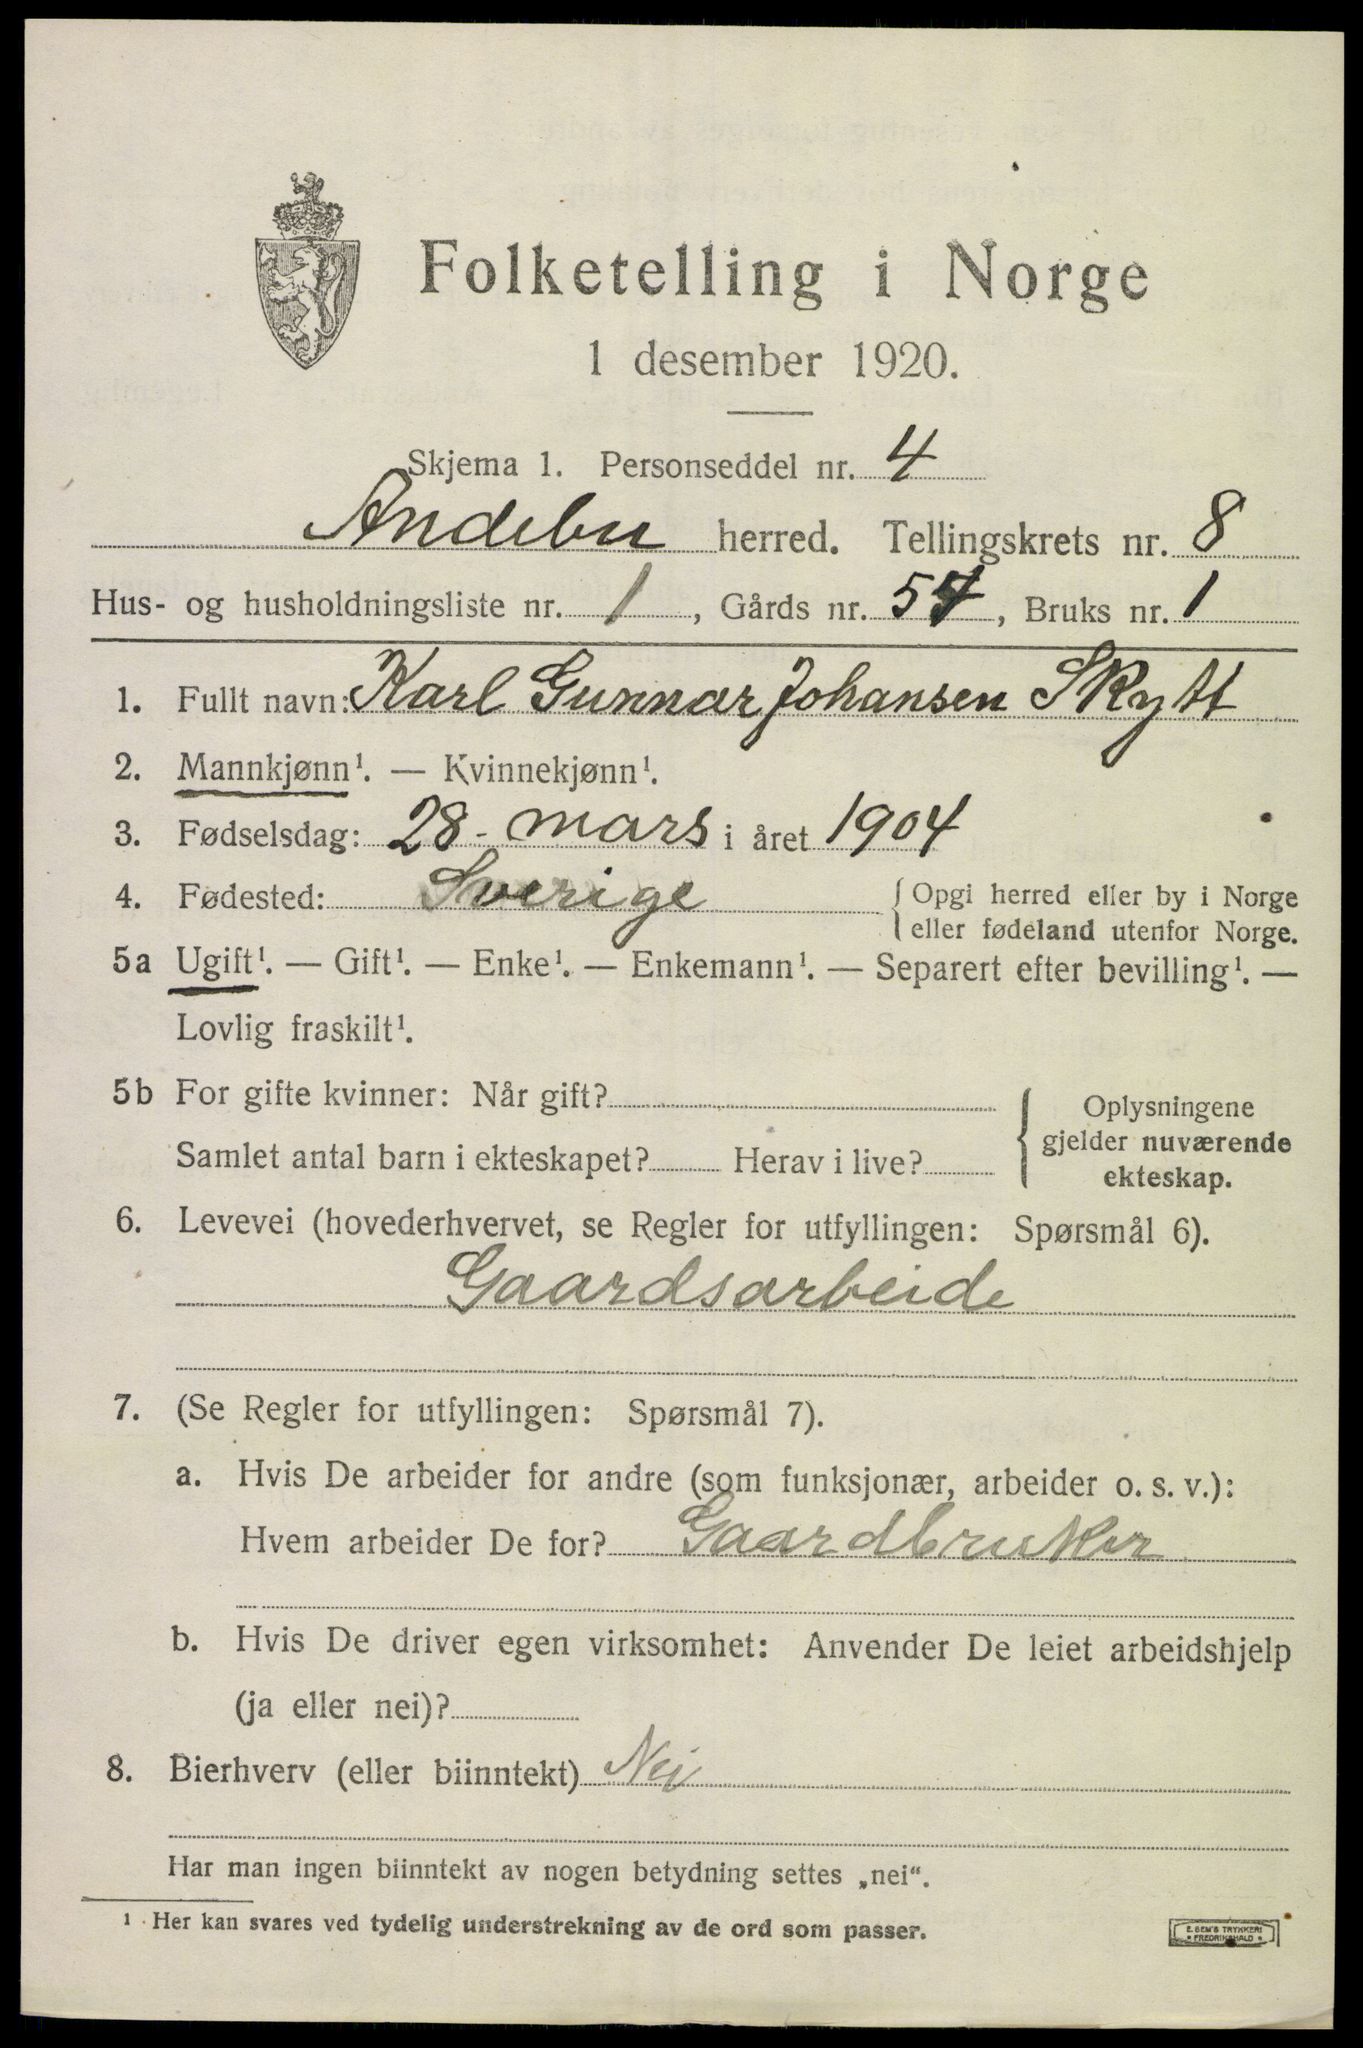 Folketelling i Norge
1 desember 1920.
Skjema 1. Personseddel nr. 4
Andebu herred. Tellingskrets nr. 8
Hus- og husholdningsliste nr. 1, Gårds nr. 54, Bruks nr. 1
1. Fullt navn: Karl Gunnar Johansen Skytt
2. Mannkjønn¹. — Kvinnekjønn¹.
3. Fødselsdag: 28 - mars i året 1904
4. Fødested: Sverige { Opgi herred eller by i Norge
eller fødeland utenfor Norge.
5a Ugift¹. — Gift¹. — Enke¹. — Enkemann¹. — Separert efter bevilling¹. —
Lovlig fraskilt¹.
5b For gifte kvinner: Når gift?
Samlet antal barn i ekteskapet? Herav i live?
{ Oplysningene
gjelder nuværende
ekteskap.
6. Levevei (hovederhvervet, se Regler for utfyllingen: Spørsmål 6).
Gaardsarbeide
7. (Se Regler for utfyllingen: Spørsmål 7).
a. Hvis De arbeider for andre (som funksjonær, arbeider o. s. v.):
Hvem arbeider De for? Gaardbruker
b. Hvis De driver egen virksomhet: Anvender De leiet arbeidshjelp
(ja eller nei)?
8. Bierhverv (eller biinntekt) Nei
Har man ingen biinntekt av nogen betydning settes „nei“.
¹ Her kan svares ved tydelig understrekning av de ord som passer.
E. SEM'S TRYKKERI
• FREDRIKSHALD •